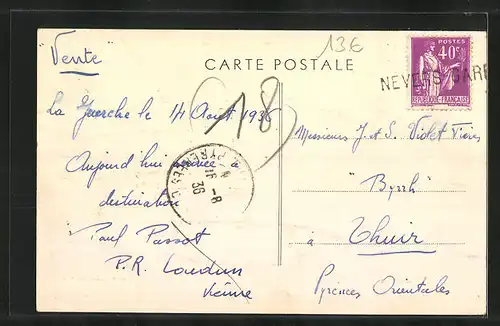 13€
Vente
CARTE POSTALE
POSTES
40c
REPUBLIQUE FRANÇAISE
NEVERS GARE
La Guerche le 14 Aout 1936
18
Messieurs J. et S. Violet Frères
Aujourd'hui
destination
16 -8
36
"Byrrh"
Paul Passot
à Thuir
P.R. Loudun
Vienne
Pyrenees Orientales